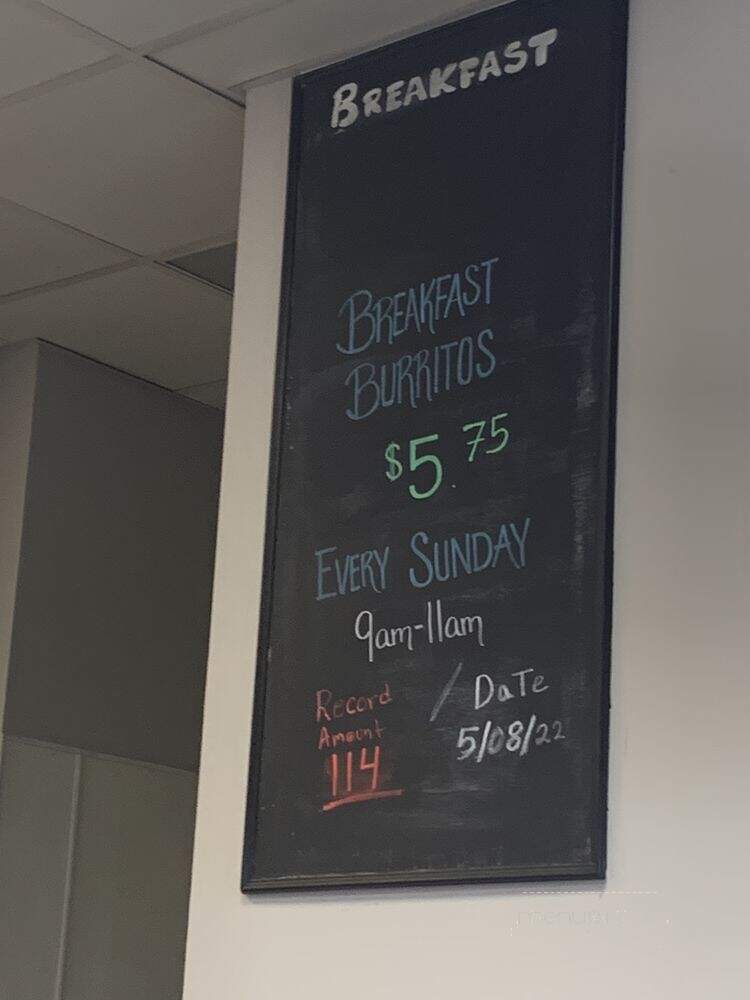 BREAKFAST
BREAKFAST
BURRITOS
$5.75
EVERY SUNDAY
9am-11am
Record / DaTe
Amount 5/08/22
114